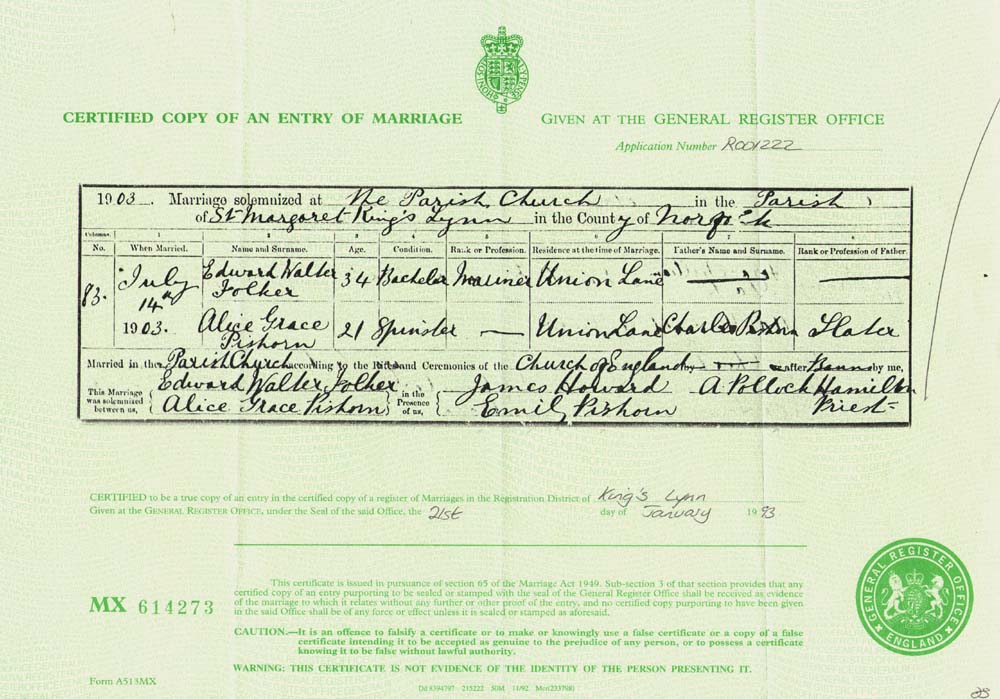 CERTIFIED COPY OF AN ENTRY OF MARRIAGE
GIVEN AT THE GENERAL REGISTER OFFICE
Application Number R001222
1903. Marriage solemnized at The Parish Church in the Parish
of St Margaret King's Lynn in the County of Norfolk
Columns. 1 2 3 4 5 6 7 8
No. When Married. Name and Surname. Age. Condition. Rank or Profession. Residence at the time of Marriage. Father's Name and Surname. Rank or Profession of Father.
83. July 14th 1903.
Edward Walter Folker 34 Bachelor Mariner Union Lane
Alice Grace Pishorn 21 Spinster — Union Lane Charles Pishorn Slater
Married in the Parish Church according to the Rites and Ceremonies of the Church of England by after Banns by me,
This Marriage was solemnized between us, Edward Walter Folker
Alice Grace Pishorn
in the Presence of us, James Howard
Emily Pishorn
A Pollock Hamilton
Priest
CERTIFIED to be a true copy of an entry in the certified copy of a register of Marriages in the Registration District of King's Lynn
Given at the GENERAL REGISTER OFFICE, under the Seal of the said Office, the 21st day of January 1993
MX 614273
This certificate is issued in pursuance of section 65 of the Marriage Act 1949. Sub-section 3 of that section provides that any
certified copy of an entry purporting to be sealed or stamped with the seal of the General Register Office shall be received as evidence
of the marriage to which it relates without any further or other proof of the entry, and no certified copy purporting to have been given
in the said Office shall be of any force or effect unless it is sealed or stamped as aforesaid.
CAUTION.—It is an offence to falsify a certificate or to make or knowingly use a false certificate or a copy of a false
certificate intending it to be accepted as genuine to the prejudice of any person, or to possess a certificate
knowing it to be false without lawful authority.
WARNING: THIS CERTIFICATE IS NOT EVIDENCE OF THE IDENTITY OF THE PERSON PRESENTING IT.
GENERAL REGISTER OFFICE
ENGLAND
Form A513MX
Dd 8394797 215222 50M 11/92